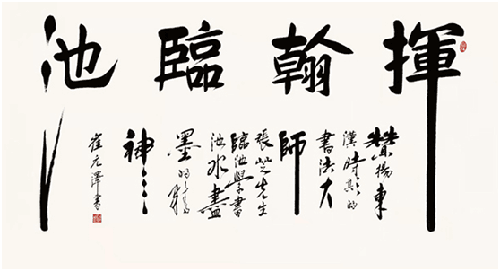 揮翰臨池
贊揚東
漢時期的
書法大
師
張芝先生
臨池學書
池水盡
墨的精
神……
崔元澤書